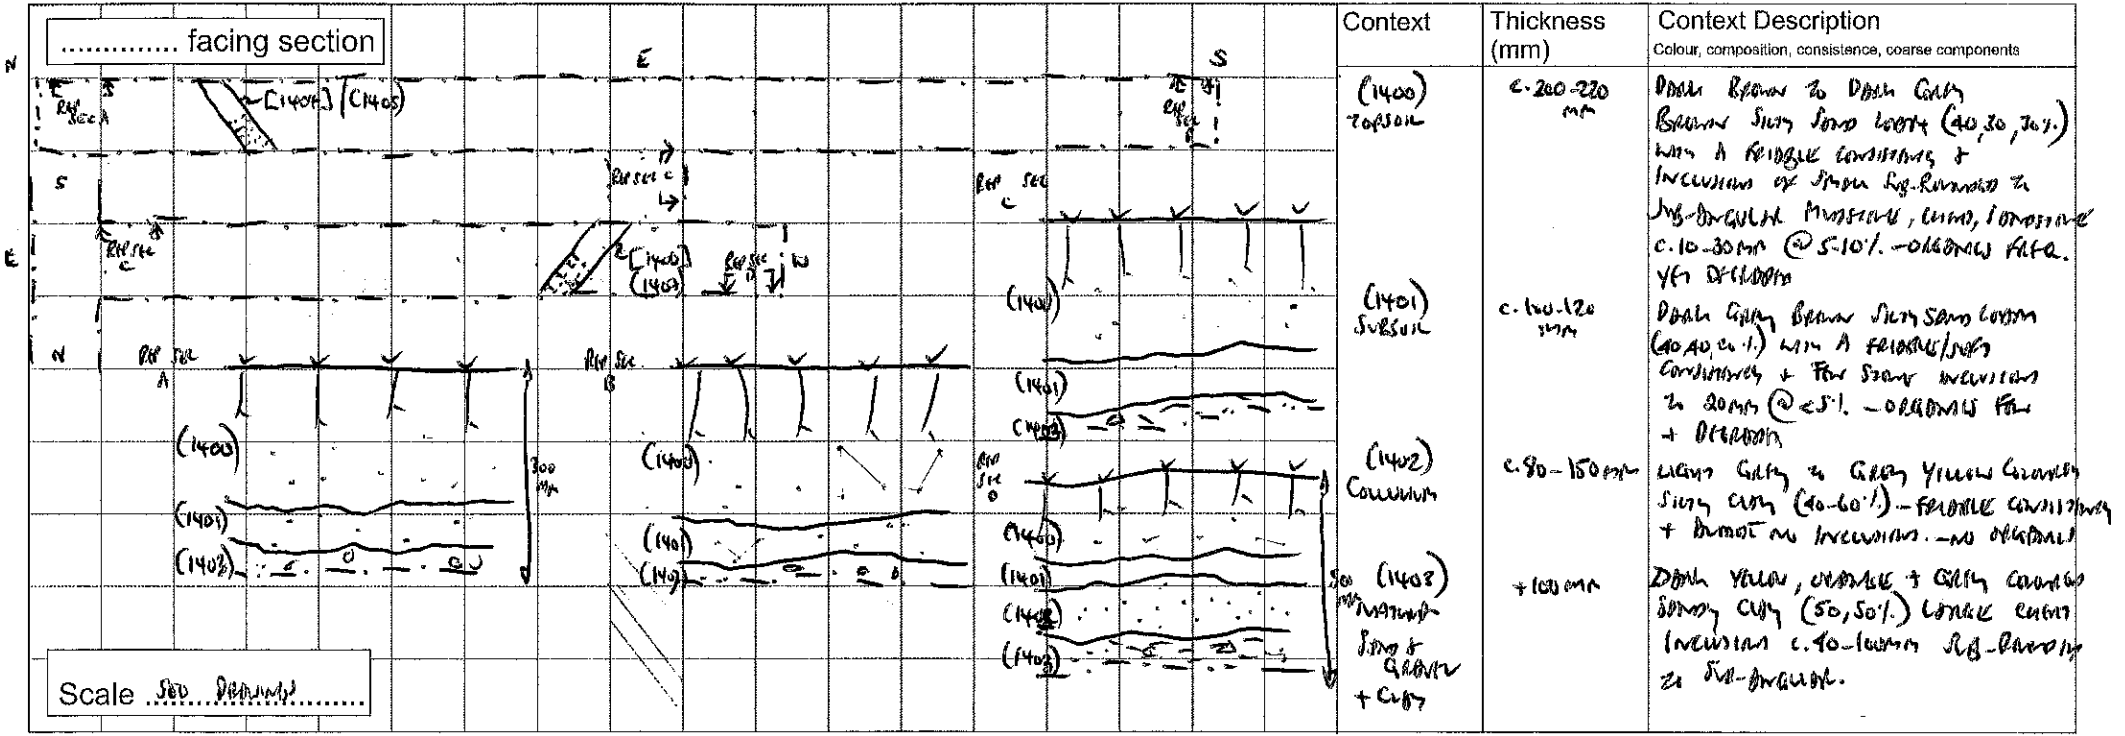 .............. facing section
N
E
S
REP SEC A
[1404] (1405)
REP SEC B
S
REP SEC C
REP SEC C
E
REP SEC C
(1407)
REP SEC D
W
N
(1400)
(1401)
(1403)
REP SEC A
(1400)
(1401)
(1403)
300 MM
REP SEC B
(1400)
(1401)
(1403)
REP SEC D
(1400)
(1401)
(1402)
(1403)
500 MM
Scale SEE DRAWINGS
Context
Thickness (mm)
Context Description
Colour, composition, consistence, coarse components
(1400)
TOPSOIL
c.200-220 MM
DARK BROWN TO DARK GREY
BROWN SILTY SAND LOAM (40,30,30%)
WITH A FRIABLE CONSISTENCY +
INCLUSIONS OF SMALL SUB-ROUNDED TO
SUB-ANGULAR MUDSTONE, CHERT, SANDSTONE
c.10-30MM @ 5-10%. - ORGANICS FREQ.
(1401)
SUBSOIL
c.100-120 MM
DARK GREY BROWN SILTY SAND LOAM
(40,40,20%) WITH A FRIABLE/SOFT
CONSISTENCY + FEW STONE INCLUSIONS
TO 20MM @ <5%. - ORGANICS FEW
(1402)
COLLUVIUM
c.80-150MM
LIGHT GREY TO GREY YELLOW COLOURED
SILTY CLAY (40-60%) - FRIABLE CONSISTENCY
+ ALMOST NO INCLUSIONS. - NO ORGANICS
(1403)
NATURAL
SAND +
GRAVEL
+ CLAY
+100MM
DARK YELLOW, ORANGE + GREY COLOURED
SANDY CLAY (50,50%) LARGE CHERT
INCLUSIONS c.40-100MM SUB-ROUNDED
TO SUB-ANGULAR.